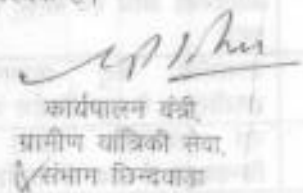 कार्यपालन यंत्री,
ग्रामीण यांत्रिकी सेवा,
संभाग छिन्दवाडा